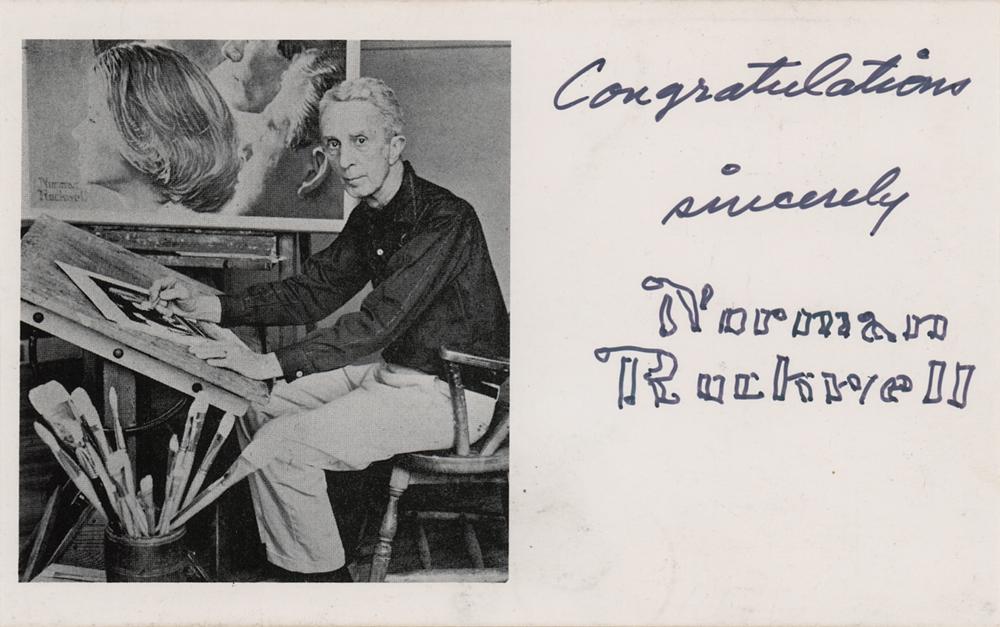 Norman
Rockwell
Congratulations
sincerely
Norman
Rockwell